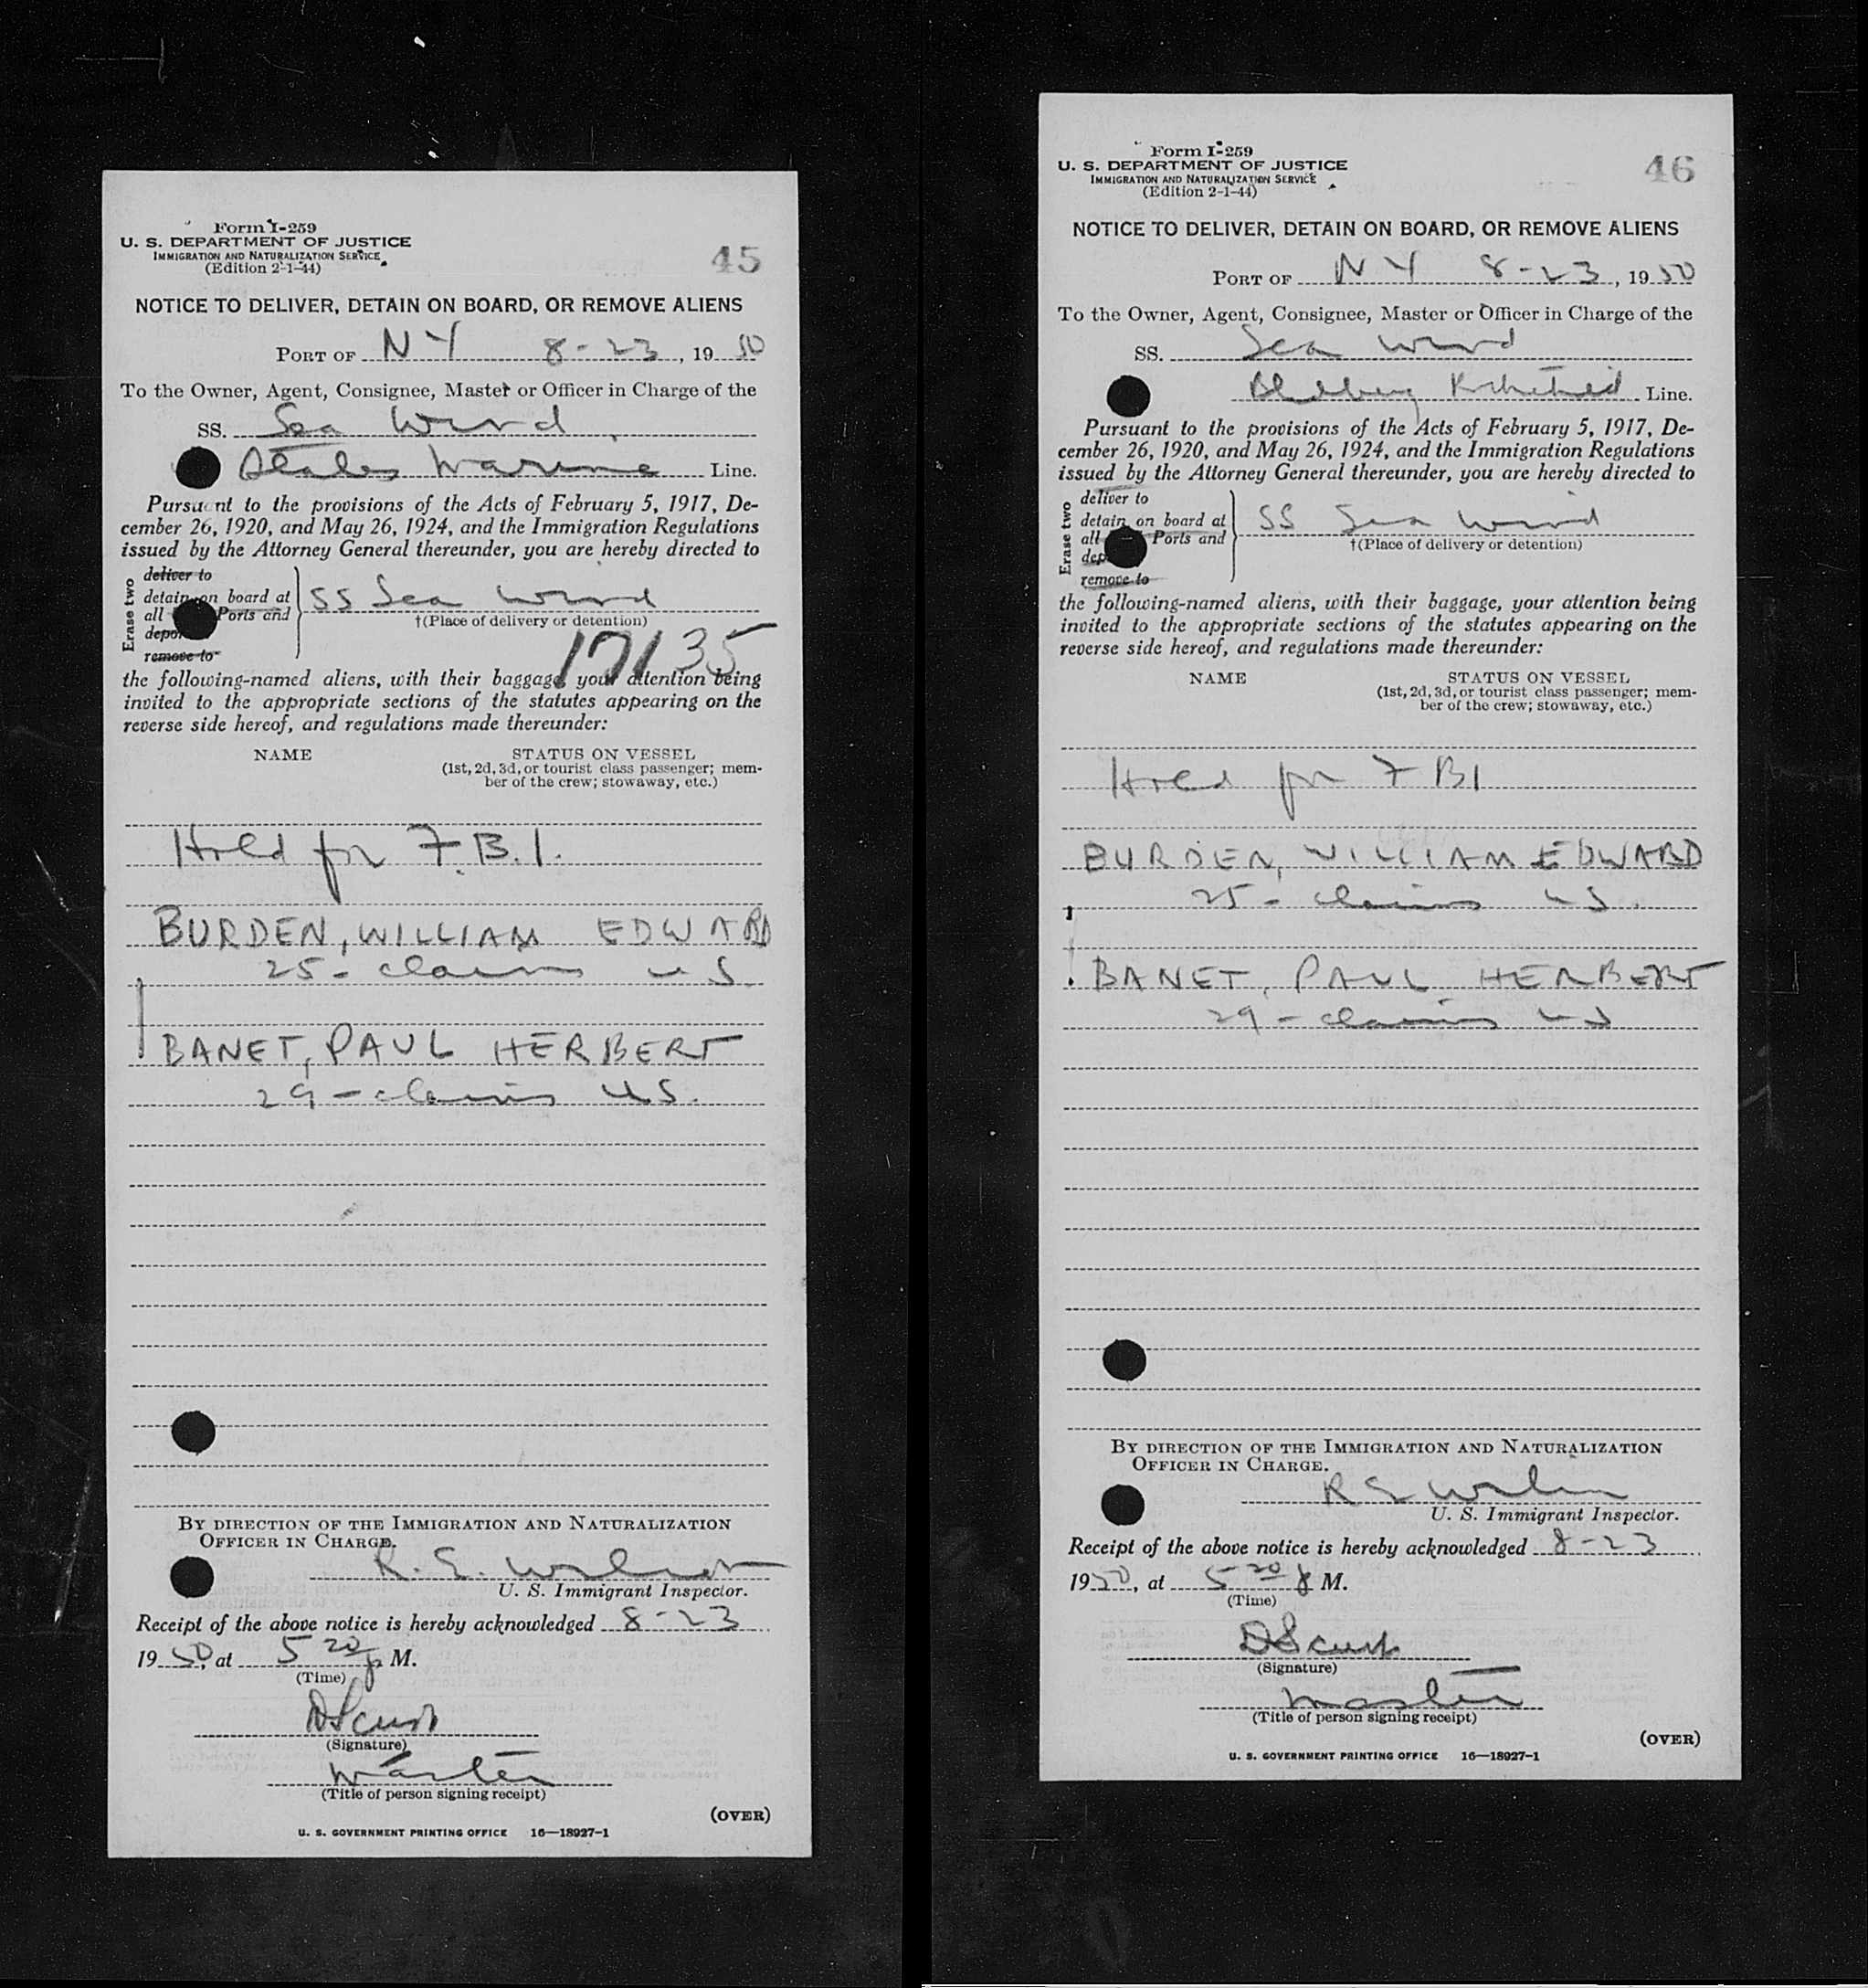 Form I-259
U. S. DEPARTMENT OF JUSTICE
IMMIGRATION AND NATURALIZATION SERVICE
(Edition 2-1-44)
45
NOTICE TO DELIVER, DETAIN ON BOARD, OR REMOVE ALIENS
PORT OF NY 8-23, 1950
To the Owner, Agent, Consignee, Master or Officer in Charge of the
SS. Sea Wind
States Marine Line.
Pursuant to the provisions of the Acts of February 5, 1917, De-
cember 26, 1920, and May 26, 1924, and the Immigration Regulations
issued by the Attorney General thereunder, you are hereby directed to
Erase two
deliver to
detain on board at
all Ports and
remove to
SS Sea Wind
†(Place of delivery or detention)
17135
the following-named aliens, with their baggage, your attention being
invited to the appropriate sections of the statutes appearing on the
reverse side hereof, and regulations made thereunder:
NAME STATUS ON VESSEL
(1st, 2d, 3d, or tourist class passenger; mem-
ber of the crew; stowaway, etc.)
Hold for F.B.I.
BURDEN, WILLIAM EDWARD
25 - claims US.
BANET, PAUL HERBERT
29 - claims US.
BY DIRECTION OF THE IMMIGRATION AND NATURALIZATION
OFFICER IN CHARGE.
R. E.
U. S. Immigrant Inspector.
Receipt of the above notice is hereby acknowledged 8-23
1950, at 5 20 p M.
(Time)
(Signature)
Master
(Title of person signing receipt)
(OVER)
U. S. GOVERNMENT PRINTING OFFICE 16—18927-1
Form I-259
U. S. DEPARTMENT OF JUSTICE
IMMIGRATION AND NATURALIZATION SERVICE
(Edition 2-1-44)
46
NOTICE TO DELIVER, DETAIN ON BOARD, OR REMOVE ALIENS
PORT OF NY 8-23, 1950
To the Owner, Agent, Consignee, Master or Officer in Charge of the
SS. Sea Wind
Line.
Pursuant to the provisions of the Acts of February 5, 1917, De-
cember 26, 1920, and May 26, 1924, and the Immigration Regulations
issued by the Attorney General thereunder, you are hereby directed to
Erase two
deliver to
detain on board at
all Ports and
remove to
SS Sea Wind
†(Place of delivery or detention)
the following-named aliens, with their baggage, your attention being
invited to the appropriate sections of the statutes appearing on the
reverse side hereof, and regulations made thereunder:
NAME STATUS ON VESSEL
(1st, 2d, 3d, or tourist class passenger; mem-
ber of the crew; stowaway, etc.)
Hold for FBI
BURDEN, WILLIAM EDWARD
25 - claims US.
BANET, PAUL HERBERT
29 - claims US
BY DIRECTION OF THE IMMIGRATION AND NATURALIZATION
OFFICER IN CHARGE.
R E
U. S. Immigrant Inspector.
Receipt of the above notice is hereby acknowledged 8-23
1950, at 5 20 p M.
(Time)
(Signature)
Master
(Title of person signing receipt)
(OVER)
U. S. GOVERNMENT PRINTING OFFICE 16—18927-1